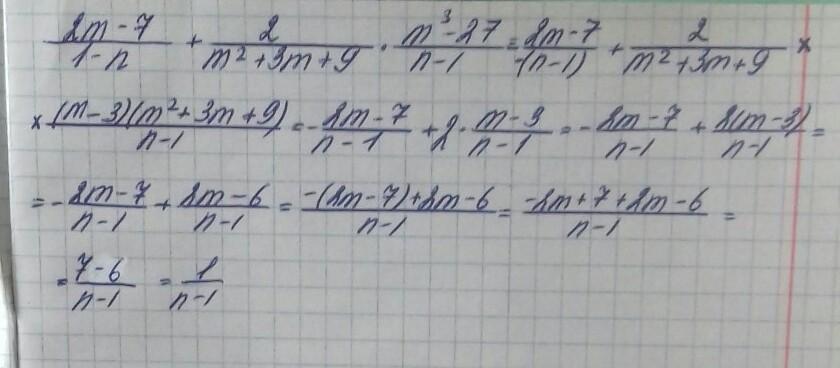 (2m-7)/(1-n) + 2/(m²+3m+9) · (m³-27)/(n-1) = (2m-7)/(-(n-1)) + 2/(m²+3m+9) ×
× ((m-3)(m²+3m+9))/(n-1) = -(2m-7)/(n-1) + 2·(m-3)/(n-1) = -(2m-7)/(n-1) + (2(m-3))/(n-1) =
= -(2m-7)/(n-1) + (2m-6)/(n-1) = (-(2m-7)+2m-6)/(n-1) = (-2m+7+2m-6)/(n-1) =
= (7-6)/(n-1) = 1/(n-1)